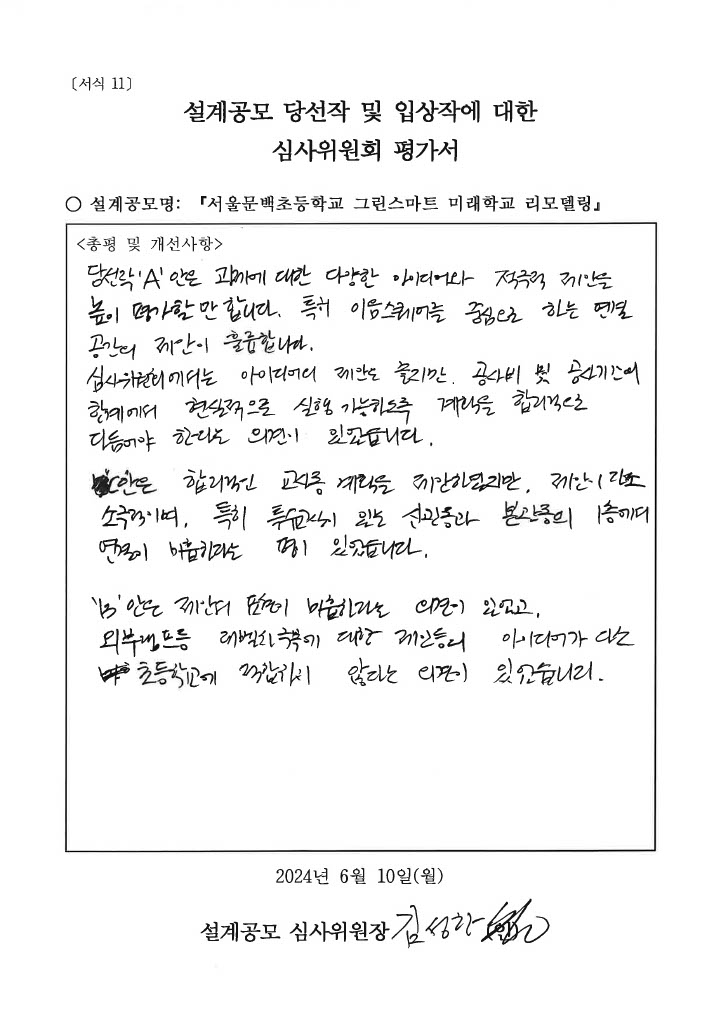 〔서식 11〕
설계공모 당선작 및 입상작에 대한
심사위원회 평가서
○ 설계공모명: 『서울문백초등학교 그린스마트 미래학교 리모델링』
<총평 및 개선사항>
당선작 'A' 안은 과제에 대한 다양한 아이디어와 적극적 제안을
높이 평가할 만 합니다. 특히 이음스퀘어를 중심으로 하는 연결
공간의 제안이 훌륭합니다.
심사위원회에서는 아이디어의 제안도 좋지만, 공사비 및 공사기간의
한계에서 현실적으로 실행 가능하도록 계획을 합리적으로
다듬어야 한다는 의견이 있었습니다.
안은 합리적인 교사동 계획을 제안하였지만, 제안이 다소
소극적이며, 특히 특수교실이 있는 신관동과 본관동의 1층에서
연결이 미흡하다는 평이 있었습니다.
'B' 안은 제안의 표현이 미흡하다는 의견이 있었고,
외부램프등 레벨의 극복에 대한 제안등의 아이디어가 다소
초등학교에 적합하지 않다는 의견이 있었습니다.
2024년 6월 10일(월)
설계공모 심사위원장 김성한